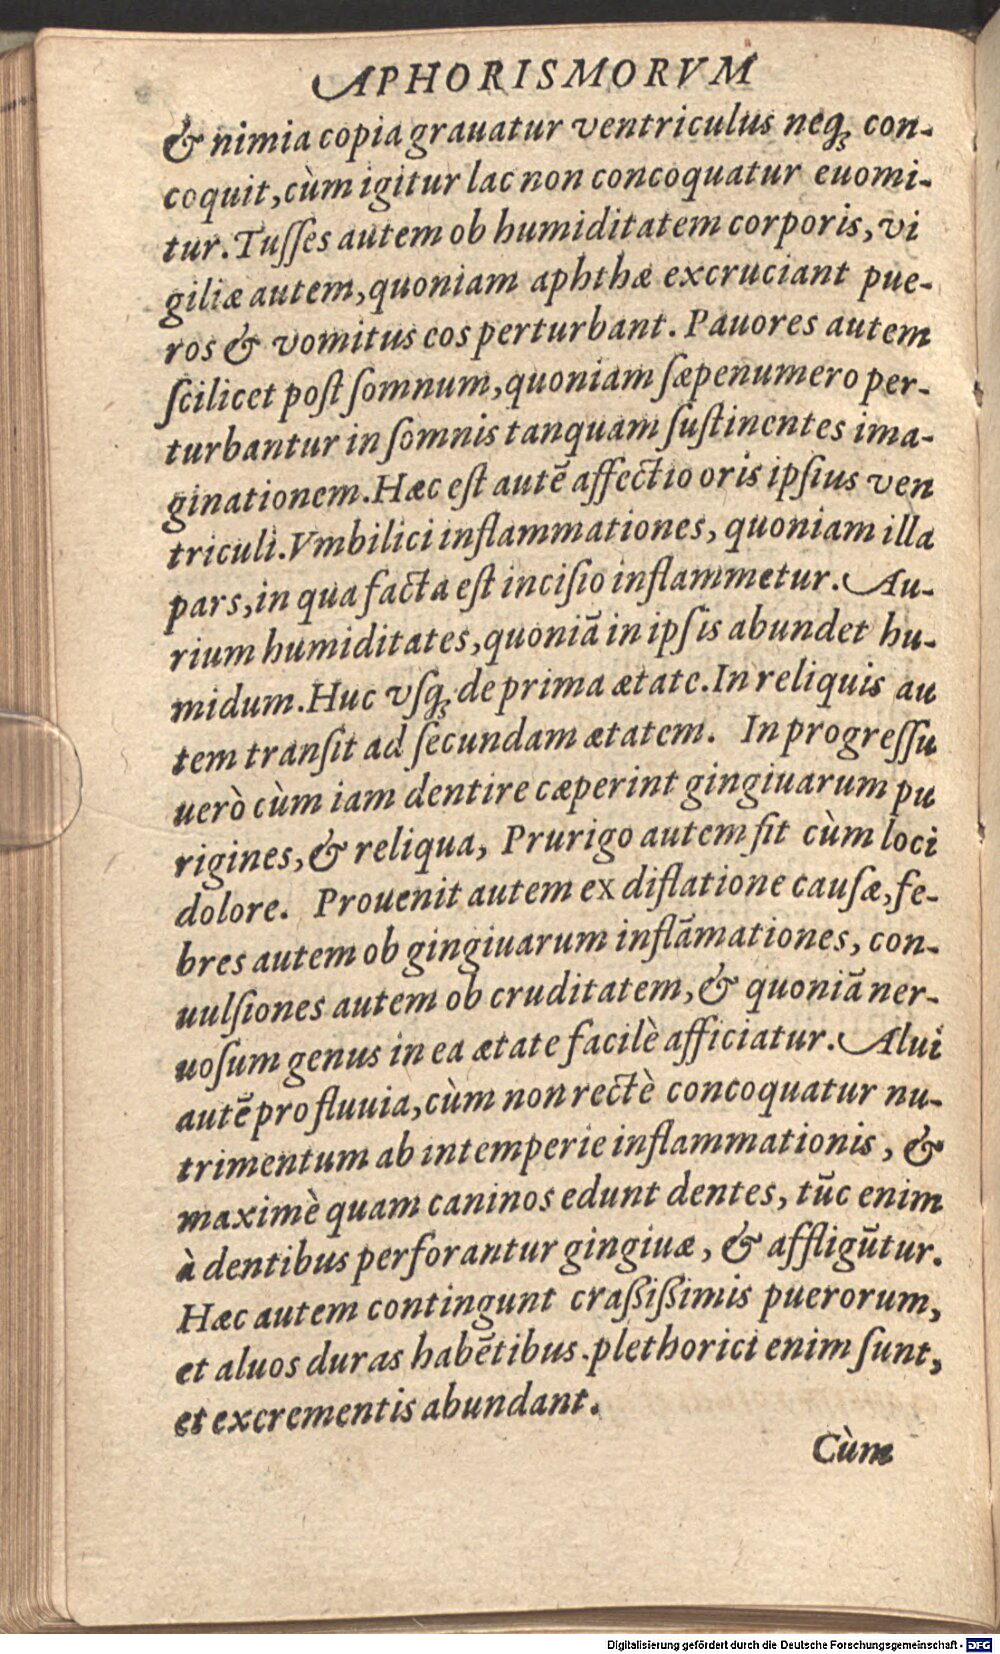 APHORISMORVM
& nimia copia grauatur ventriculus neq; con-
coquit, cùm igitur lac non concoquatur euomi-
tur. Tuſſes autem ob humiditatem corporis, vi
giliæ autem, quoniam aphthæ excruciant pue-
ros & vomitus cos perturbant. Pauores autem
ſcilicet poſt ſomnum, quoniam ſæpenumero per-
turbantur in ſomnis tanquam ſuſtinentes ima-
ginationem. Hæc eſt autē affectio oris ipſius ven
triculi. Vmbilici inflammationes, quoniam illa
pars, in qua facta eſt inciſio inflammetur. Au-
rium humiditates, quoniā in ipſis abundet hu-
midum. Huc vſq; de prima ætate. In reliquis au
tem tranſit ad ſecundam ætatem. In progreſſu
uerò cùm iam dentire cæperint gingiuarum pu
rigines, & reliqua, Prurigo autem fit cùm loci
dolore. Prouenit autem ex diflatione cauſæ, fe-
bres autem ob gingiuarum inflāmationes, con-
uulſiones autem ob cruditatem, & quoniā ner-
uoſum genus in ea ætate facilè afficiatur. Alui
autē profluuia, cùm non rectè concoquatur nu-
trimentum ab intemperie inflammationis, &
maximè quam caninos edunt dentes, tūc enim
à dentibus perforantur gingiuæ, & affligūtur.
Hæc autem contingunt craßißimis puerorum,
et aluos duras habētibus. plethorici enim ſunt,
et excrementis abundant.
Cùm
Digitalisierung gefördert durch die Deutsche Forschungsgemeinschaft - DFG